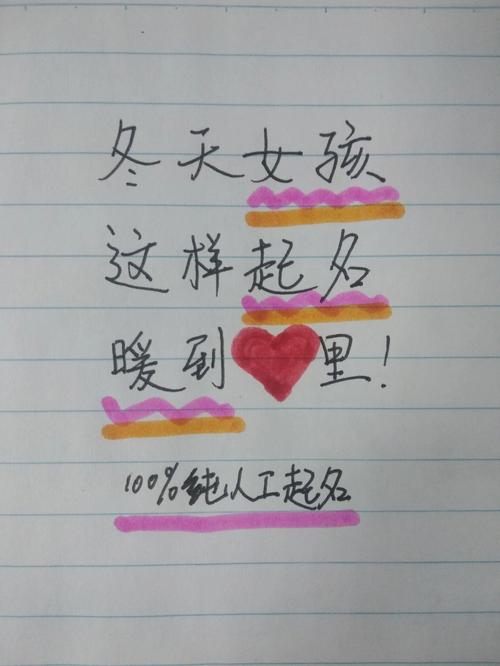 冬天女孩
这样起名
暖到❤里!
100%纯人工起名